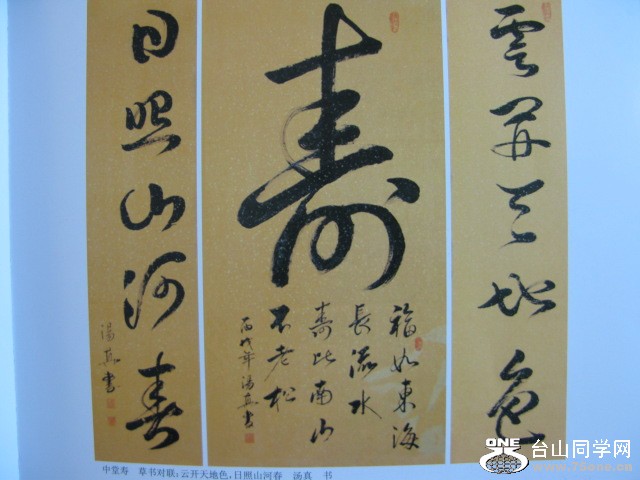 雲開天地色
壽
福如東海
長流水
壽比南山
不老松
丙戌年湯真書
日照山河春
湯真書
中堂寿 草书对联:云开天地色,日照山河春 汤真 书
ONE
台山同学网
www.75one.cn